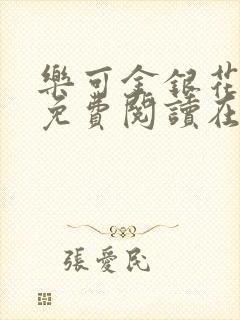 樂可金銀花
免費閱讀在
張愛民